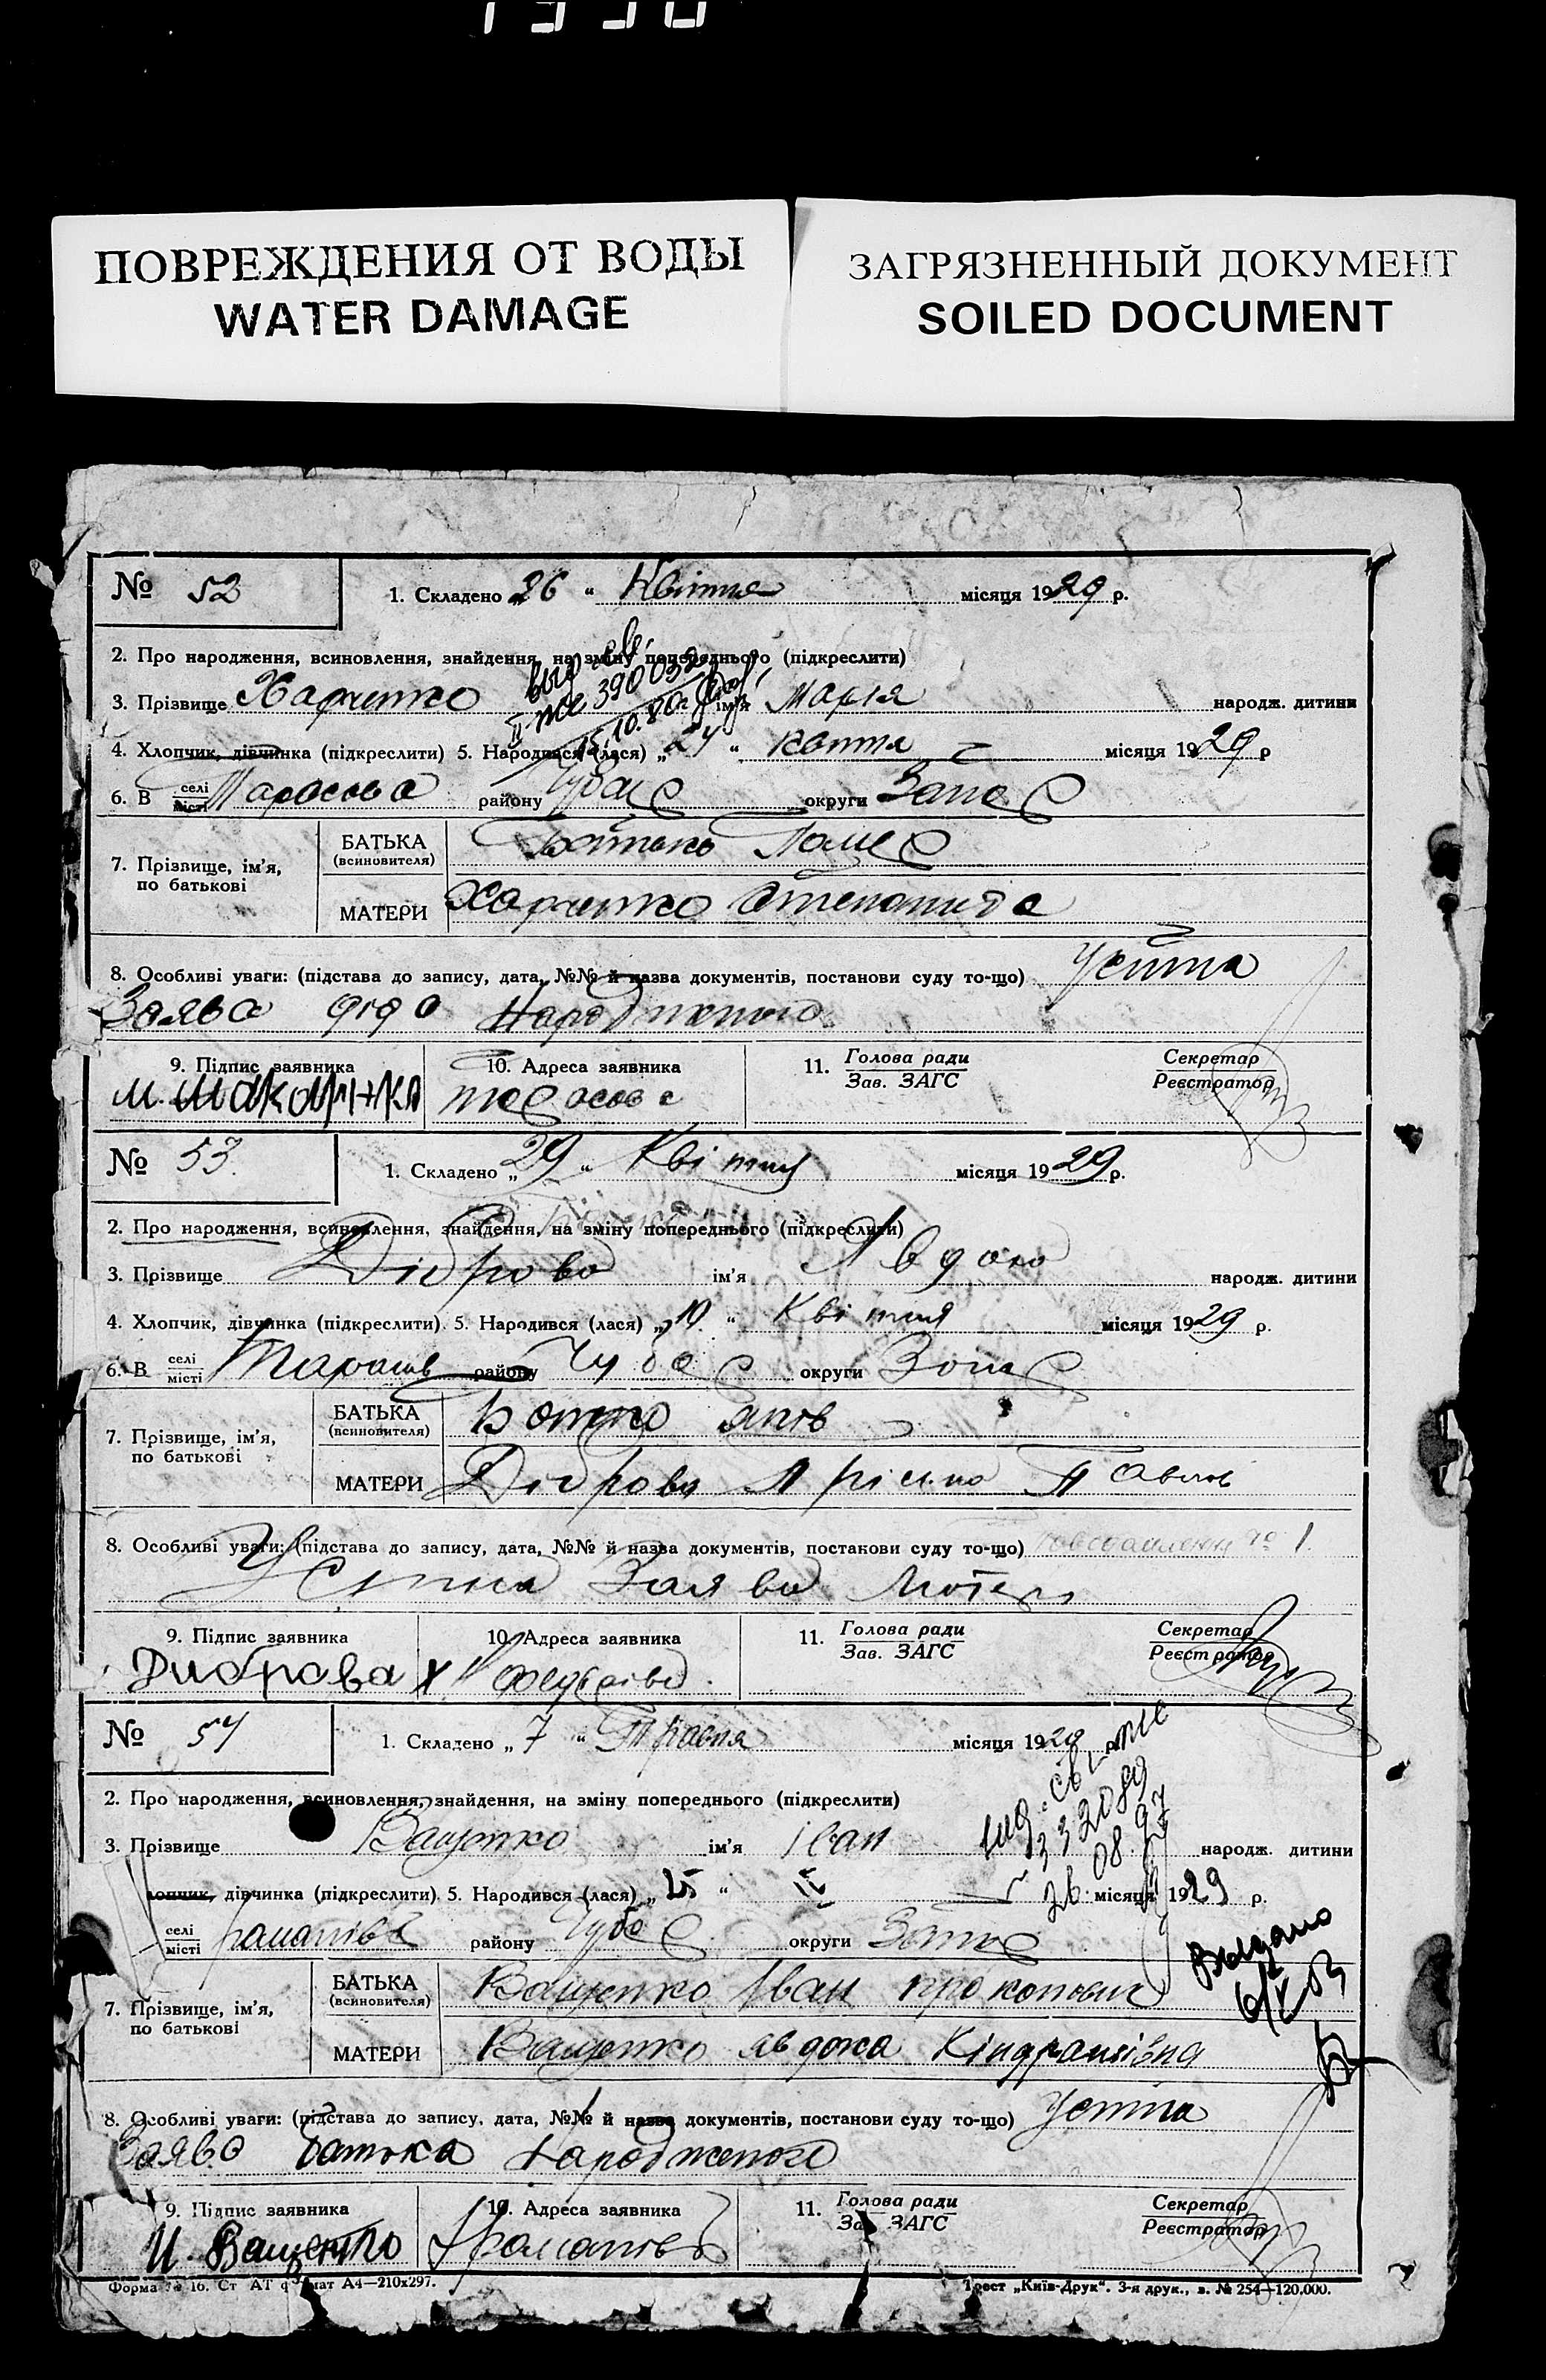 1930
ПОВРЕЖДЕНИЯ ОТ ВОДЫ
WATER DAMAGE
ЗАГРЯЗНЕННЫЙ ДОКУМЕНТ
SOILED DOCUMENT
№ 52 1. Складено „26“ Квітня місяця 1929 р.
2. Про народження, всиновлення, знайдення, на зміну попереднього (підкреслити)
3. Прізвище Харченко ім'я Марія народж. дитини
выд. св.
II-ЖС 390032
15.10.80г.
4. Хлопчик, дівчинка (підкреслити) 5. Народився (лася) „24“ квітня місяця 1929 р
6. В селі місті Тарасовка району Чубар округи Запор
7. Прізвище, ім'я, по батькові
БАТЬКА (всиновителя) Батько
МАТЕРИ Харченко Степанида
8. Особливі уваги: (підстава до запису, дата, №№ й назва документів, постанови суду то-що) Усітна
Заява діда народженого
9. Підпис заявника 10. Адреса заявника 11. Голова ради Секретар
Зав. ЗАГС Реєстратор
М. Макаринка Тарасовка
№ 53. 1. Складено „29“ Квітня місяця 1929 р.
2. Про народження, всиновлення, знайдення, на зміну попереднього (підкреслити)
3. Прізвище Діброва ім'я Явдоха народж. дитини
4. Хлопчик, дівчинка (підкреслити). 5. Народився (лася) „10.“ Квітня місяця 1929 р.
6. В селі місті району Чубар округи Запор
7. Прізвище, ім'я, по батькові
БАТЬКА (всиновителя) Батько
МАТЕРИ Діброва Арісина Павлов
8. Особливі уваги: (підстава до запису, дата, №№ й назва документів, постанови суду то-що) 1.
Устна Заява Матери
9. Підпис заявника 10. Адреса заявника 11. Голова ради Секретар
Зав. ЗАГС Реєстратор
Диброва Х.
№ 54 1. Складено „7“ Травня місяця 1929 р.
2. Про народження, всиновлення, знайдення, на зміну попереднього (підкреслити)
3. Прізвище Ващенко ім'я Іван народж. дитини
вид. св. I-ЖС
332089
26.08.97
Хлопчик, дівчинка (підкреслити). 5. Народився (лася) „25“ IV місяця 1929 р.
селі місті району Чубар округи Запор
Видано
7. Прізвище, ім'я, по батькові
БАТЬКА (всиновителя) Ващенко Іван прокопович
МАТЕРИ Ващенко явдоха Кіндратівна
8. Особливі уваги: (підстава до запису, дата, №№ й назва документів, постанови суду то-що) Устна
Заява батька народженого
9. Підпис заявника 10. Адреса заявника 11. Голова ради Секретар
Зав. ЗАГС Реєстратор
И. Ващенко
Форма № 16. Ст АТ формат А4—210x297. Трест „Київ-Друк“. 3-я друк., з. № 254—120,000.